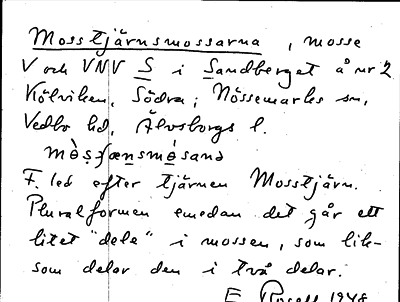 Mosstjärnsmossarna, mosse
V och VNV S i Sandberget å nr 2
Kölviken, Södra; Nössemarks sn,
Vedbo hd, Älvsborgs l.
F. led efter tjärnen Mosstjärn.
Pluralformen emedan det går ett
litet "dele" i mossen, som lik-
som delar den i två delar.
E. 1948